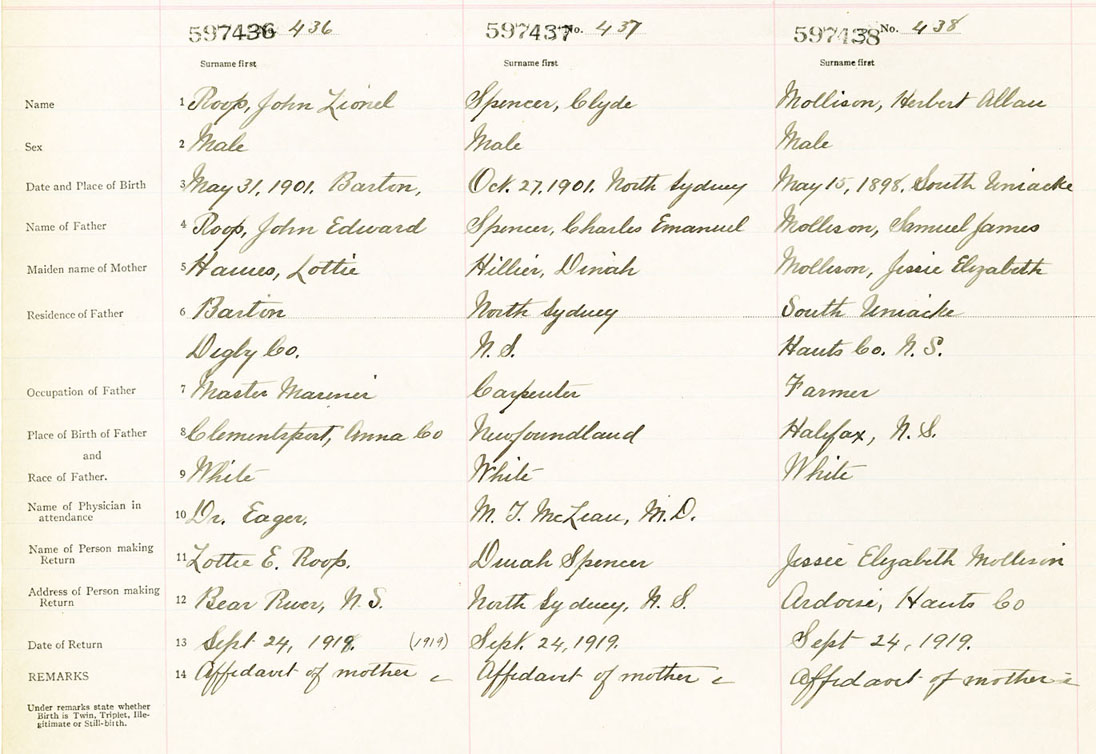 597436 436 597437 No. 437 597438 No. 438
Surname first Surname first Surname first
Name 1 Roop, John Lionel Spencer, Clyde Mollison, Herbert Allan
Sex 2 Male Male Male
Date and Place of Birth 3 May 31, 1901. Barton, Oct. 27, 1901. North Sydney May 15, 1898. South Uniacke
Name of Father 4 Roop, John Edward Spencer, Charles Emanuel Mollison, Samuel James
Maiden name of Mother 5 Haines, Lottie Hillier, Dinah Mollison, Jessie Elizabeth
Residence of Father 6 Barton North Sydney South Uniacke
Digby Co. N. S. Hants Co. N. S.
Occupation of Father 7 Master Mariner Carpenter Farmer
Place of Birth of Father 8 Clementsport, Anna Co Newfoundland Halifax, N. S.
and
Race of Father. 9 White White White
Name of Physician in
attendance 10 Dr. Eager. M. T. McLean, M.D.
Name of Person making
Return 11 Lottie E. Roop. Dinah Spencer Jessie Elizabeth Mollison
Address of Person making
Return 12 Bear River, N. S. North Sydney, N. S. Ardoise, Hants Co
Date of Return 13 Sept 24, 1919. (1919) Sept. 24, 1919. Sept 24, 1919.
REMARKS 14 Affidavit of mother Affidavit of mother Affidavit of mother
Under remarks state whether
Birth is Twin, Triplet, Ille-
gitimate or Still-birth.